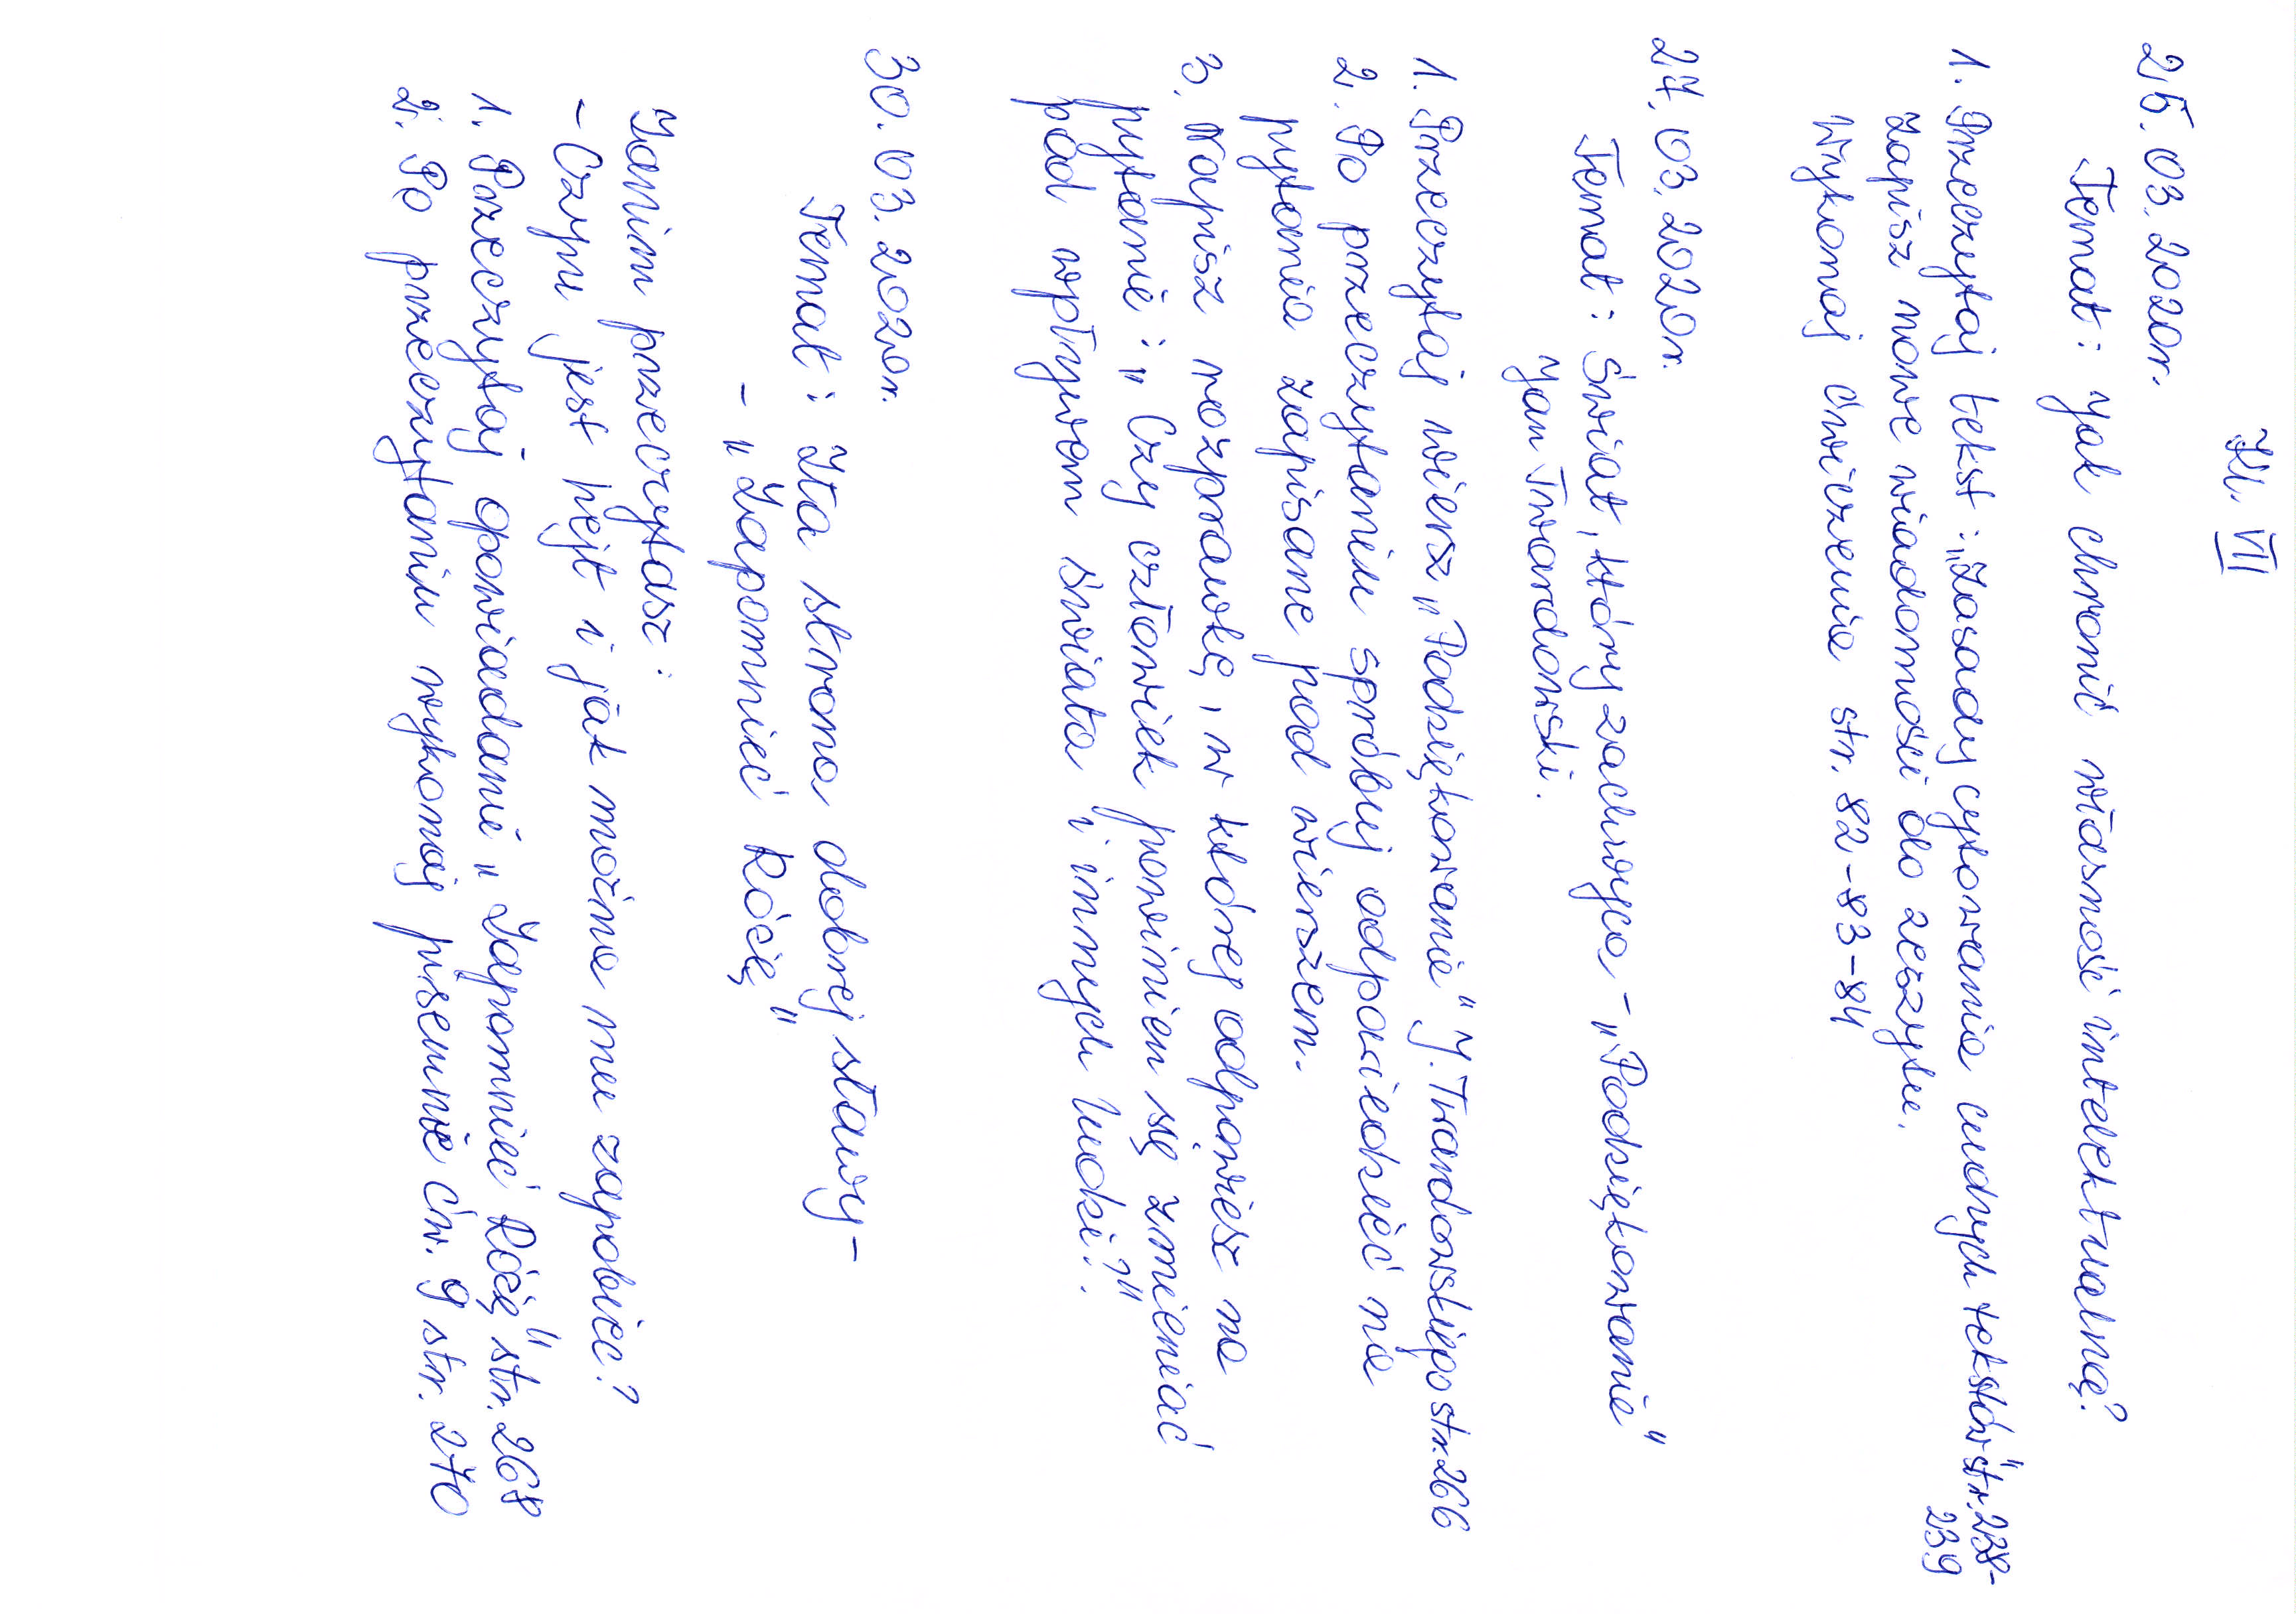 Kl. VII
25. 03. 2020r.
Temat: Jak chronić własność intelektualną?
1. Przeczytaj tekst: „Zasady cytowania cudzych tekstów" str. 238-
239
Zapisz nowe wiadomości do zeszytu.
Wykonaj ćwiczenia str. 82-83-84
27. 03. 2020r.
Temat: Świat, który zachwyca - „Podziękowanie"
Jan Twardowski.
1. Przeczytaj wiersz „Podziękowanie" J. Twardowskiego str. 266
2. Po przeczytaniu spróbuj odpowiedzieć na
pytania zapisane pod wierszem.
3. Napisz rozprawkę, w której odpowiesz na
pytanie: „Czy człowiek powinien się zmieniać
pod wpływem świata i innych ludzi?".
30. 03. 2020r.
Temat: Zła strona dobrej sławy -
- „Zapomnieć Różę"
Zanim przeczytasz:
- Czym jest hejt i jak można mu zapobiec?
1. Przeczytaj opowiadanie „Zapomnieć Różę" str. 268
2. Po przeczytaniu wykonaj pisemnie ćw. 9 str. 270